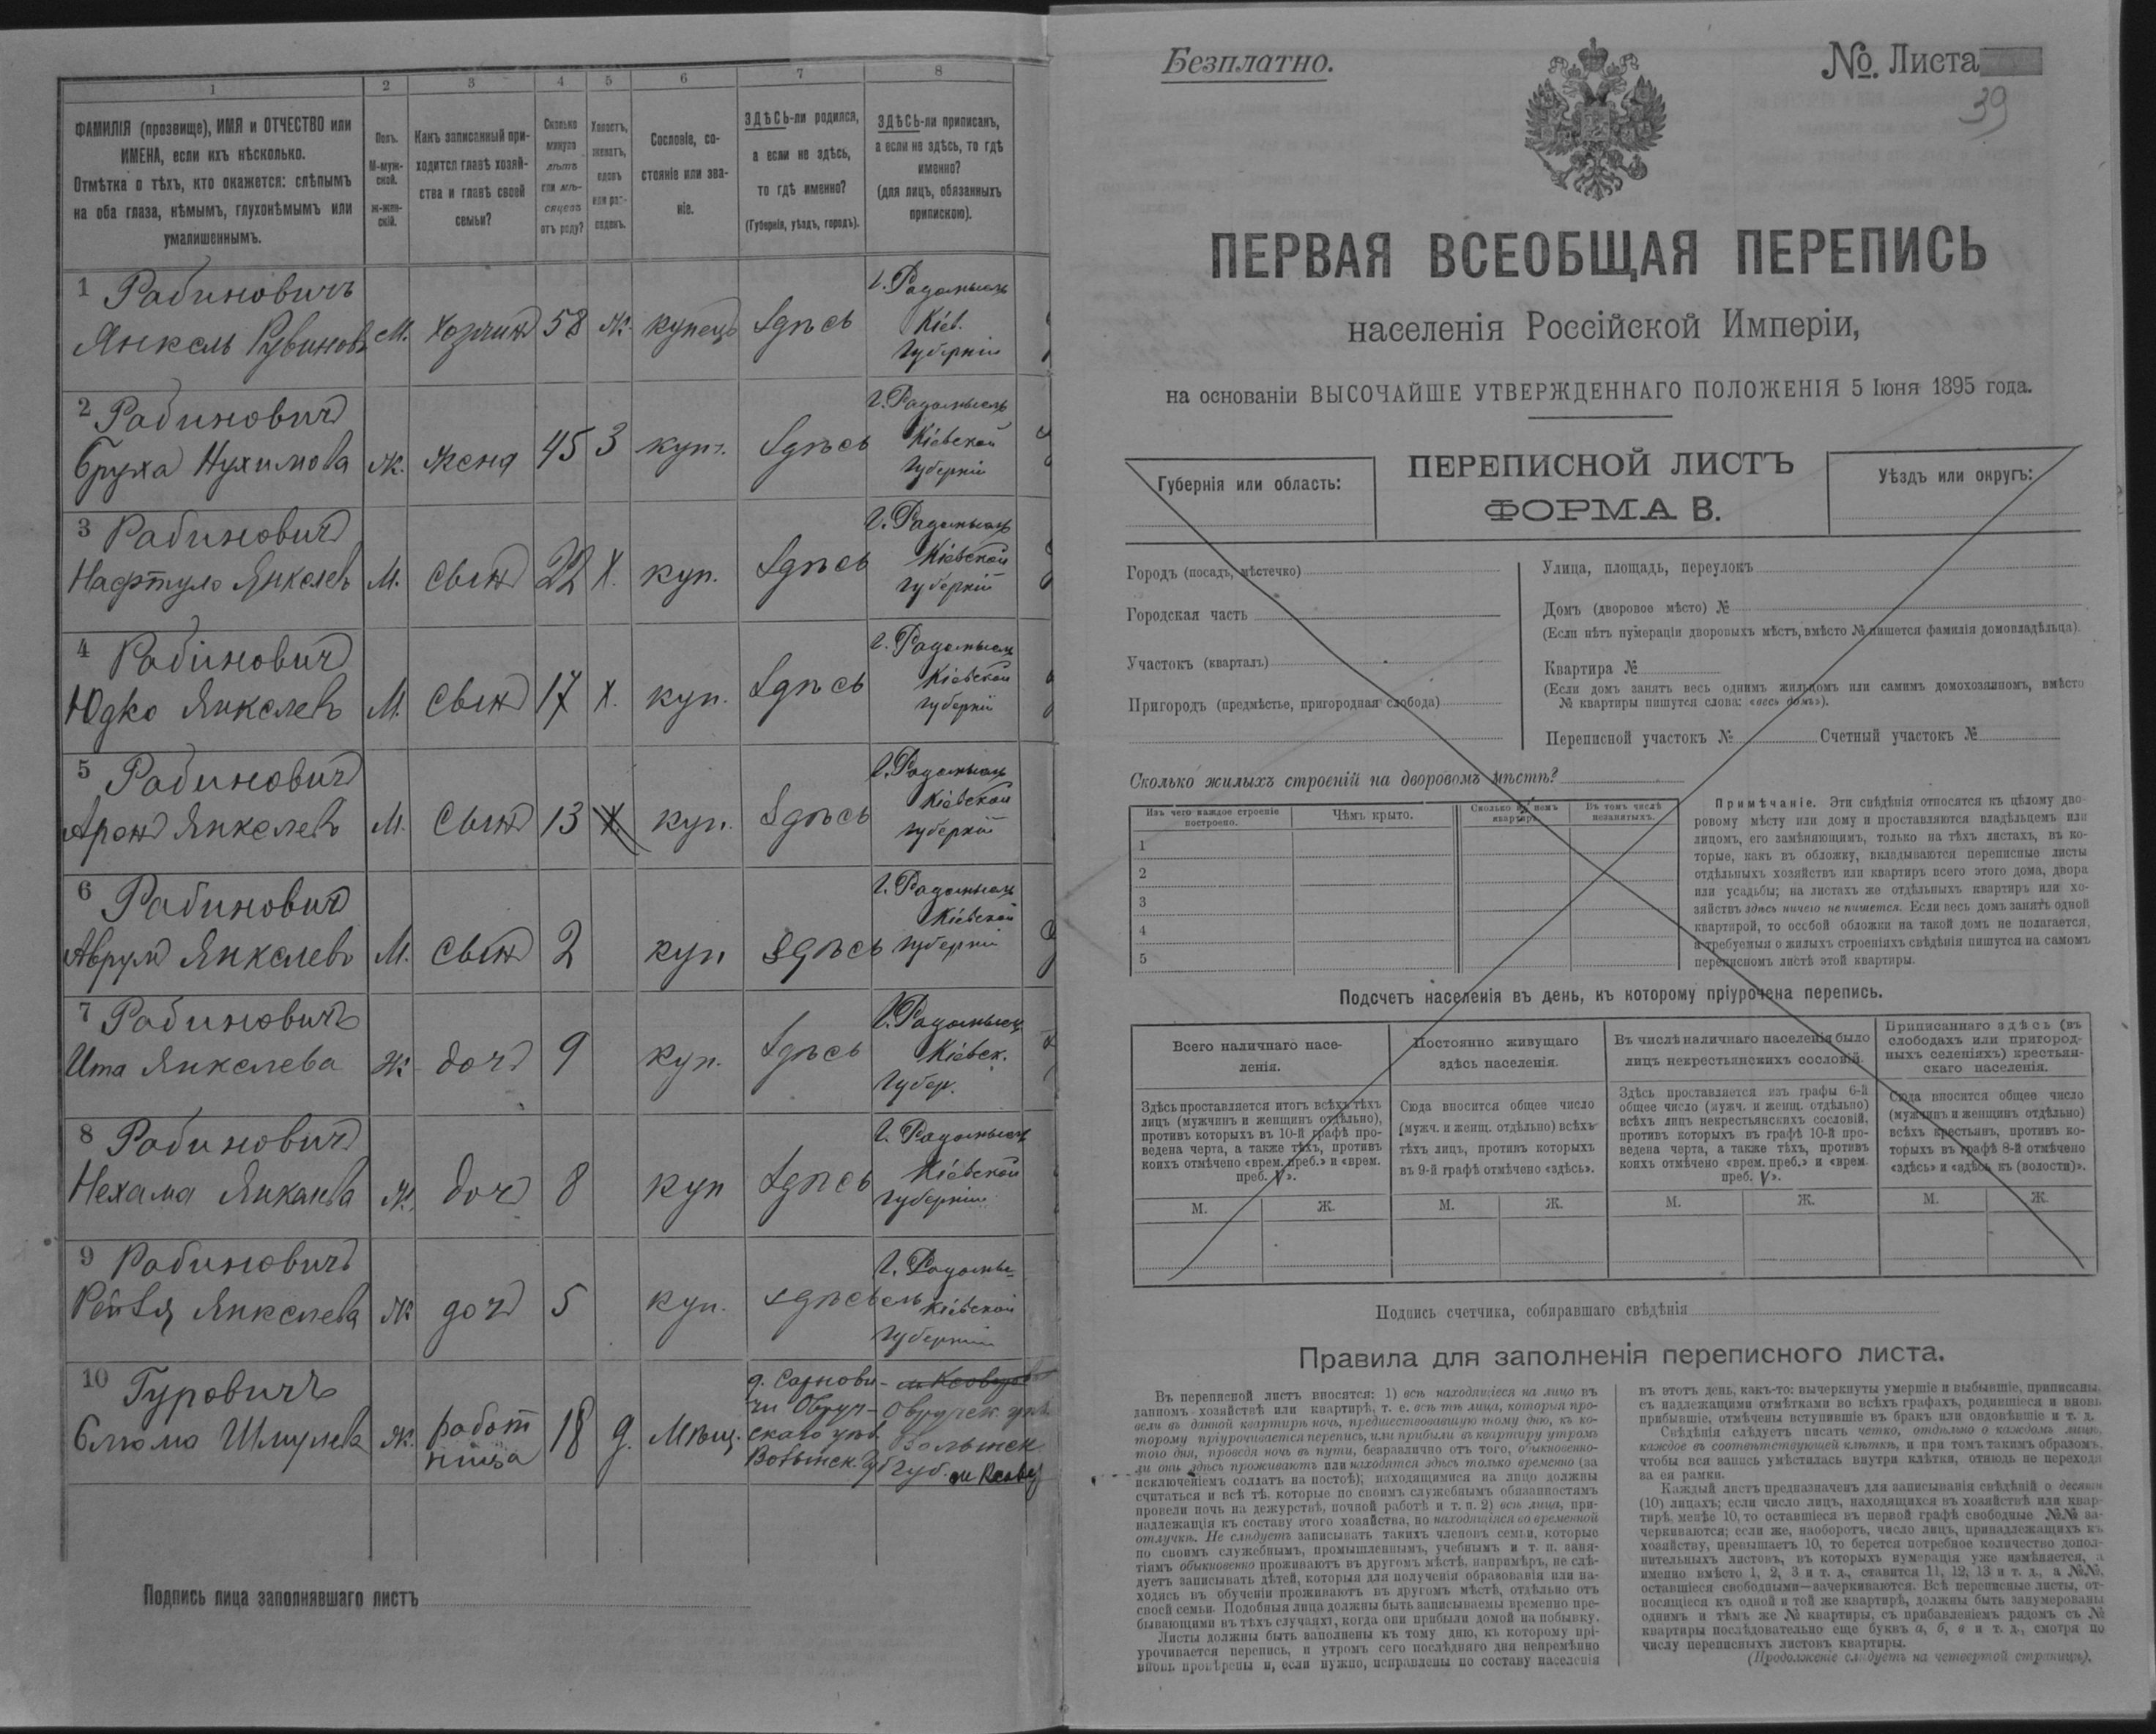 1
2
3
4
5
6
7
8
ФАМИЛІЯ (прозвище), ИМЯ и ОТЧЕСТВО или
ИМЕНА, если ихъ нѣсколько.
Отмѣтка о тѣхъ, кто окажется: слѣпымъ
на оба глаза, нѣмымъ, глухонѣмымъ или
умалишеннымъ.
Полъ.
М-муж-
ской.
ж-жен-
скій.
Какъ записанный при-
ходится главѣ хозяй-
ства и главѣ своей
семьи?
Сколько
минуло
лѣтъ
или мѣ-
сяцевъ
отъ роду?
Холостъ,
женатъ,
вдовъ
или раз-
веденъ.
Сословіе, со-
стояніе или зва-
ніе.
ЗДѢСЬ-ли родился,
а если не здѣсь,
то гдѣ именно?
(Губернія, уѣздъ, городъ).
ЗДѢСЬ-ли приписанъ,
а если не здѣсь, то гдѣ
именно?
(для лицъ, обязанныхъ
припискою).
1 Рабиновичъ
Янкель Рувиновъ М. хозяинъ 58 ж. купецъ Здѣсь
г. Радомысль
Кіев.
губерніи
2 Рабиновичъ
Бруха Нухимова ж. жена 45 З куп. Здѣсь
г. Радомысль
Кіевской
губерніи
3 Рабиновичъ
Нафтула Янкелевъ М. сынъ 22 Х. куп. Здѣсь
г. Радомысль
Кіевской
губерніи
4 Рабіновичъ
Юдко Янкелевъ М. сынъ 17 Х. куп. Здѣсь
г. Радомысль
Кіевской
губерніи
5 Рабиновичъ
Аронъ Янкелевъ М. Сынъ 13 Х куп. Здѣсь
г. Радомысль
Кіевской
губерніи
6 Рабиновичъ
Аврумъ Янкелевъ М. сынъ 2 куп здѣсь
г. Радомысль
Кіевской
губерніи
7 Рабиновичъ
Ита Янкелева ж доч 9 куп. Здѣсь
г. Радомысль
Кіевск.
губер.
8 Рабиновичъ
Нехама Янкелева ж. доч 8 куп Здѣсь
г. Радомысль
Кіевской
губерніи
9 Рабиновичъ
Рейзя Янкелева ж доч 5 куп. здѣсь
г. Радомы-
сль Кіевской
губерніи
10 Гуровичъ
Слюма Шмулева ж. работ
ница 18 д. Мѣщ.
Овруч-
скаго уѣз
Волынск. губ
Овручск. уѣз
Волынск
губ.
Подпись лица заполнявшаго листъ
Безплатно.
№. Листа
39
ПЕРВАЯ ВСЕОБЩАЯ ПЕРЕПИСЬ
населенія Россійской Имперіи,
на основаніи ВЫСОЧАЙШЕ УТВЕРЖДЕННАГО ПОЛОЖЕНІЯ 5 Іюня 1895 года.
Губернія или область:
ПЕРЕПИСНОЙ ЛИСТЪ
ФОРМА В.
Уѣздъ или округъ:
Городъ (посадъ, мѣстечко)
Городская часть
Участокъ (кварталъ)
Пригородъ (предмѣстье, пригородная слобода)
Улица, площадь, переулокъ
Домъ (дворовое мѣсто) №
(Если нѣтъ нумераціи дворовыхъ мѣстъ, вмѣсто № пишется фамилія домовладѣльца).
Квартира №
(Если домъ занятъ весь однимъ жильцомъ или самимъ домохозяиномъ, вмѣсто
№ квартиры пишутся слова: «весь домъ»).
Переписной участокъ № Счетный участокъ №
Сколько жилыхъ строеній на дворовомъ мѣстѣ?
Изъ чего каждое строеніе
построено.
Чѣмъ крыто.
Сколько въ немъ
квартиръ.
Въ томъ числѣ
незанятыхъ.
1
2
3
4
5
Примѣчаніе. Эти свѣдѣнія относятся къ цѣлому дво-
ровому мѣсту или дому и проставляются владѣльцемъ или
лицомъ, его замѣняющимъ, только на тѣхъ листахъ, въ ко-
торые, какъ въ обложку, вкладываются переписные листы
отдѣльныхъ хозяйствъ или квартиръ всего этого дома, двора
или усадьбы; на листахъ же отдѣльныхъ квартиръ или хо-
зяйствъ здѣсь ничего не пишется. Если весь домъ занятъ одной
квартирой, то особой обложки на такой домъ не полагается,
а требуемыя о жилыхъ строеніяхъ свѣдѣнія пишутся на самомъ
переписномъ листѣ этой квартиры.
Подсчетъ населенія въ день, къ которому пріурочена перепись.
Всего наличнаго насе-
ленія.
Постоянно живущаго
здѣсь населенія.
Въ числѣ наличнаго населенія было
лицъ некрестьянскихъ сословій.
Приписаннаго здѣсь (въ
слободахъ или пригород-
ныхъ селеніяхъ) крестьян-
скаго населенія.
Здѣсь проставляется итогъ всѣхъ тѣхъ
лицъ (мужчинъ и женщинъ отдѣльно),
противъ которыхъ въ 10-й графѣ про-
ведена черта, а также тѣхъ, противъ
коихъ отмѣчено «врем. преб.» и «врем.
преб. V».
Сюда вносится общее число
(мужч. и женщ. отдѣльно) всѣхъ
тѣхъ лицъ, противъ которыхъ
въ 9-й графѣ отмѣчено «здѣсь».
Здѣсь проставляется изъ графы 6-й
общее число (мужч. и женщ. отдѣльно)
всѣхъ лицъ некрестьянскихъ сословій,
противъ которыхъ въ графѣ 10-й про-
ведена черта, а также тѣхъ, противъ
коихъ отмѣчено «врем. преб.» и «врем.
преб. V».
Сюда вносится общее число
(мужчинъ и женщинъ отдѣльно)
всѣхъ крестьянъ, противъ ко-
торыхъ въ графѣ 8-й отмѣчено
«здѣсь» и «здѣсь къ (волости)».
М. Ж. М. Ж. М. Ж. М. Ж.
Подпись счетчика, собиравшаго свѣдѣнія
Правила для заполненія переписного листа.
Въ переписной листъ вносятся: 1) всѣ находящіеся на лицо въ
данномъ хозяйствѣ или квартирѣ, т. е. всѣ тѣ лица, которыя про-
вели въ данной квартирѣ ночь, предшествовавшую тому дню, къ ко-
торому пріурочивается перепись, или прибыли въ квартиру утромъ
того дня, проведя ночь въ пути, безразлично отъ того, обыкновенно-
ли они здѣсь проживаютъ или находятся здѣсь только временно (за
исключеніемъ солдатъ на постоѣ); находящимися на лицо должны
считаться и всѣ тѣ, которые по своимъ служебнымъ обязанностямъ
провели ночь на дежурствѣ, ночной работѣ и т. п. 2) всѣ лица, при-
надлежащія къ составу этого хозяйства, но находящіяся во временной
отлучкѣ. Не слѣдуетъ записывать такихъ членовъ семьи, которые
по своимъ служебнымъ, промышленнымъ, учебнымъ и т. п. заня-
тіямъ обыкновенно проживаютъ въ другомъ мѣстѣ, напримѣръ, не слѣ-
дуетъ записывать дѣтей, которыя для полученія образованія или на-
ходясь въ обученіи проживаютъ въ другомъ мѣстѣ, отдѣльно отъ
своей семьи. Подобныя лица должны быть записываемы временно пре-
бывающими въ тѣхъ случаяхъ, когда они прибыли домой на побывку.
Листы должны быть заполнены къ тому дню, къ которому прі-
урочивается перепись, и утромъ сего послѣдняго дня непремѣнно
вновь провѣрены и, если нужно, исправлены по составу населенія
въ этотъ день, какъ-то: вычеркнуты умершіе и выбывшіе, приписаны,
съ надлежащими отмѣтками во всѣхъ графахъ, родившіеся и вновь
прибывшіе, отмѣчены вступившіе въ бракъ или овдовѣвшіе и т. д.
Свѣдѣнія слѣдуетъ писать четко, отдѣльно о каждомъ лицѣ,
каждое въ соотвѣтствующей клѣткѣ, и при томъ такимъ образомъ,
чтобы вся запись умѣстилась внутри клѣтки, отнюдь не переходя
за ея рамки.
Каждый листъ предназначенъ для записыванія свѣдѣній о десяти
(10) лицахъ; если число лицъ, находящихся въ хозяйствѣ или квар-
тирѣ, менѣе 10, то оставшіеся въ первой графѣ свободные №№ за-
черкиваются; если же, наоборотъ, число лицъ, принадлежащихъ къ
хозяйству, превышаетъ 10, то берется потребное количество допол-
нительныхъ листовъ, въ которыхъ нумерація уже измѣняется, а
именно вмѣсто 1, 2, 3 и т. д., ставится 11, 12, 13 и т. д., а №№,
оставшіеся свободными—зачеркиваются. Всѣ переписные листы, от-
носящіеся къ одной и той же квартирѣ, должны быть занумерованы
однимъ и тѣмъ же № квартиры, съ прибавленіемъ рядомъ съ №
квартиры послѣдовательно еще буквъ а, б, в и т. д., смотря по
числу переписныхъ листовъ квартиры.
(Продолженіе слѣдуетъ на четвертой страницѣ).